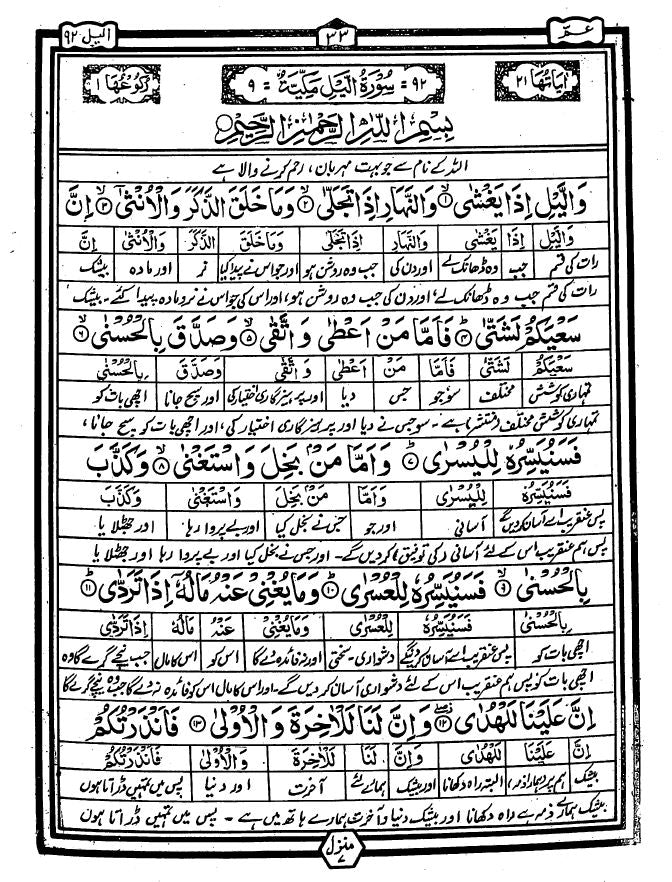 عمّ ٣٣ الیل ٩٢
اٰیاتها ٢١ ٩٢ = سُوْرَةُ الَّیْلِ مَكِّیَّةٌ = ٩ رکوعها ١
بِسْمِ اللّٰهِ الرَّحْمٰنِ الرَّحِیْمِ
اللہ کے نام سے جو بہت مہربان، رحم کرنے والا ہے
وَالَّیْلِ اِذَا یَغْشٰی ۝١ وَالنَّهَارِ اِذَا تَجَلّٰی ۝٢ وَمَا خَلَقَ الذَّكَرَ وَالْاُنْثٰۤی ۝٣ اِنَّ
وَالَّیْلِ اِذَا یَغْشٰی وَالنَّهَارِ اِذَا تَجَلّٰی وَمَا خَلَقَ الذَّكَرَ وَالْاُنْثٰۤی اِنَّ
رات کی قسم جب وہ ڈھانک لے اور دن کی جب وہ روشن ہو اور جو اس نے پیدا کیا نر اور مادہ بیشک
رات کی قسم جب وہ ڈھانک لے، اور دن کی جب وہ روشن ہو، اور اس کی جو اس نے نر و مادہ پیدا کئے۔ بیشک
سَعْیَكُمْ لَشَتّٰی ۝٤ فَاَمَّا مَنْ اَعْطٰی وَاتَّقٰی ۝٥ وَصَدَّقَ بِالْحُسْنٰی ۝٦
سَعْیَكُمْ لَشَتّٰی فَاَمَّا مَنْ اَعْطٰی وَاتَّقٰی وَصَدَّقَ بِالْحُسْنٰی
تمہاری کوشش مختلف سو جو جس دیا اور پرہیزگاری اختیار کی اور سچ جانا اچھی بات کو
تمہاری کوشش مختلف (منتشر) ہے۔ سو جس نے دیا اور پرہیزگاری اختیار کی، اور اچھی بات کو سچ جانا،
فَسَنُیَسِّرُهٗ لِلْیُسْرٰی ۝٧ وَاَمَّا مَنْۢ بَخِلَ وَاسْتَغْنٰی ۝٨ وَكَذَّبَ
فَسَنُیَسِّرُهٗ لِلْیُسْرٰی وَاَمَّا مَنْۢ بَخِلَ وَاسْتَغْنٰی وَكَذَّبَ
پس عنقریب اسے آسان کردیں گے آسانی اور جو جس نے بخل کیا اور بے پروا رہا اور جھٹلایا
پس ہم عنقریب اس کے لئے آسانی (کی توفیق) کر دیں گے۔ اور جس نے بخل کیا اور بے پروا رہا اور جھٹلایا
بِالْحُسْنٰی ۝٩ فَسَنُیَسِّرُهٗ لِلْعُسْرٰی ۝١٠ وَمَا یُغْنِیْ عَنْهُ مَالُهٗۤ اِذَا تَرَدّٰی ۝١١
بِالْحُسْنٰی فَسَنُیَسِّرُهٗ لِلْعُسْرٰی وَمَا یُغْنِیْ عَنْهُ مَالُهٗۤ اِذَا تَرَدّٰی
اچھی بات کو پس عنقریب اسے آسان کردینگے دشواری۔سختی اور نہ فائدہ دے گا اس کو اس کا مال جب نیچے گرے گا وہ
اچھی بات کو پس ہم عنقریب اس کے لئے دشواری آسان کر دیں گے۔ اور اس کا مال اس کو فائدہ نہ دے گا جب وہ نیچے گرے گا
اِنَّ عَلَیْنَا لَلْهُدٰی ۝١٢ وَاِنَّ لَنَا لَلْاٰخِرَةَ وَالْاُوْلٰی ۝١٣ فَاَنْذَرْتُكُمْ
اِنَّ عَلَیْنَا لَلْهُدٰی وَاِنَّ لَنَا لَلْاٰخِرَةَ وَالْاُوْلٰی فَاَنْذَرْتُكُمْ
بیشک ہم پر (ہمارا ذمہ) البتہ راہ دکھانا اور بیشک ہمارے لئے آخرت اور دنیا پس میں تمہیں ڈراتا ہوں
بیشک ہمارے ذمہ ہے راہ دکھانا اور بیشک دنیا و آخرت ہمارے ہاتھ میں ہے۔ پس میں تمہیں ڈراتا ہوں
منزل ٧